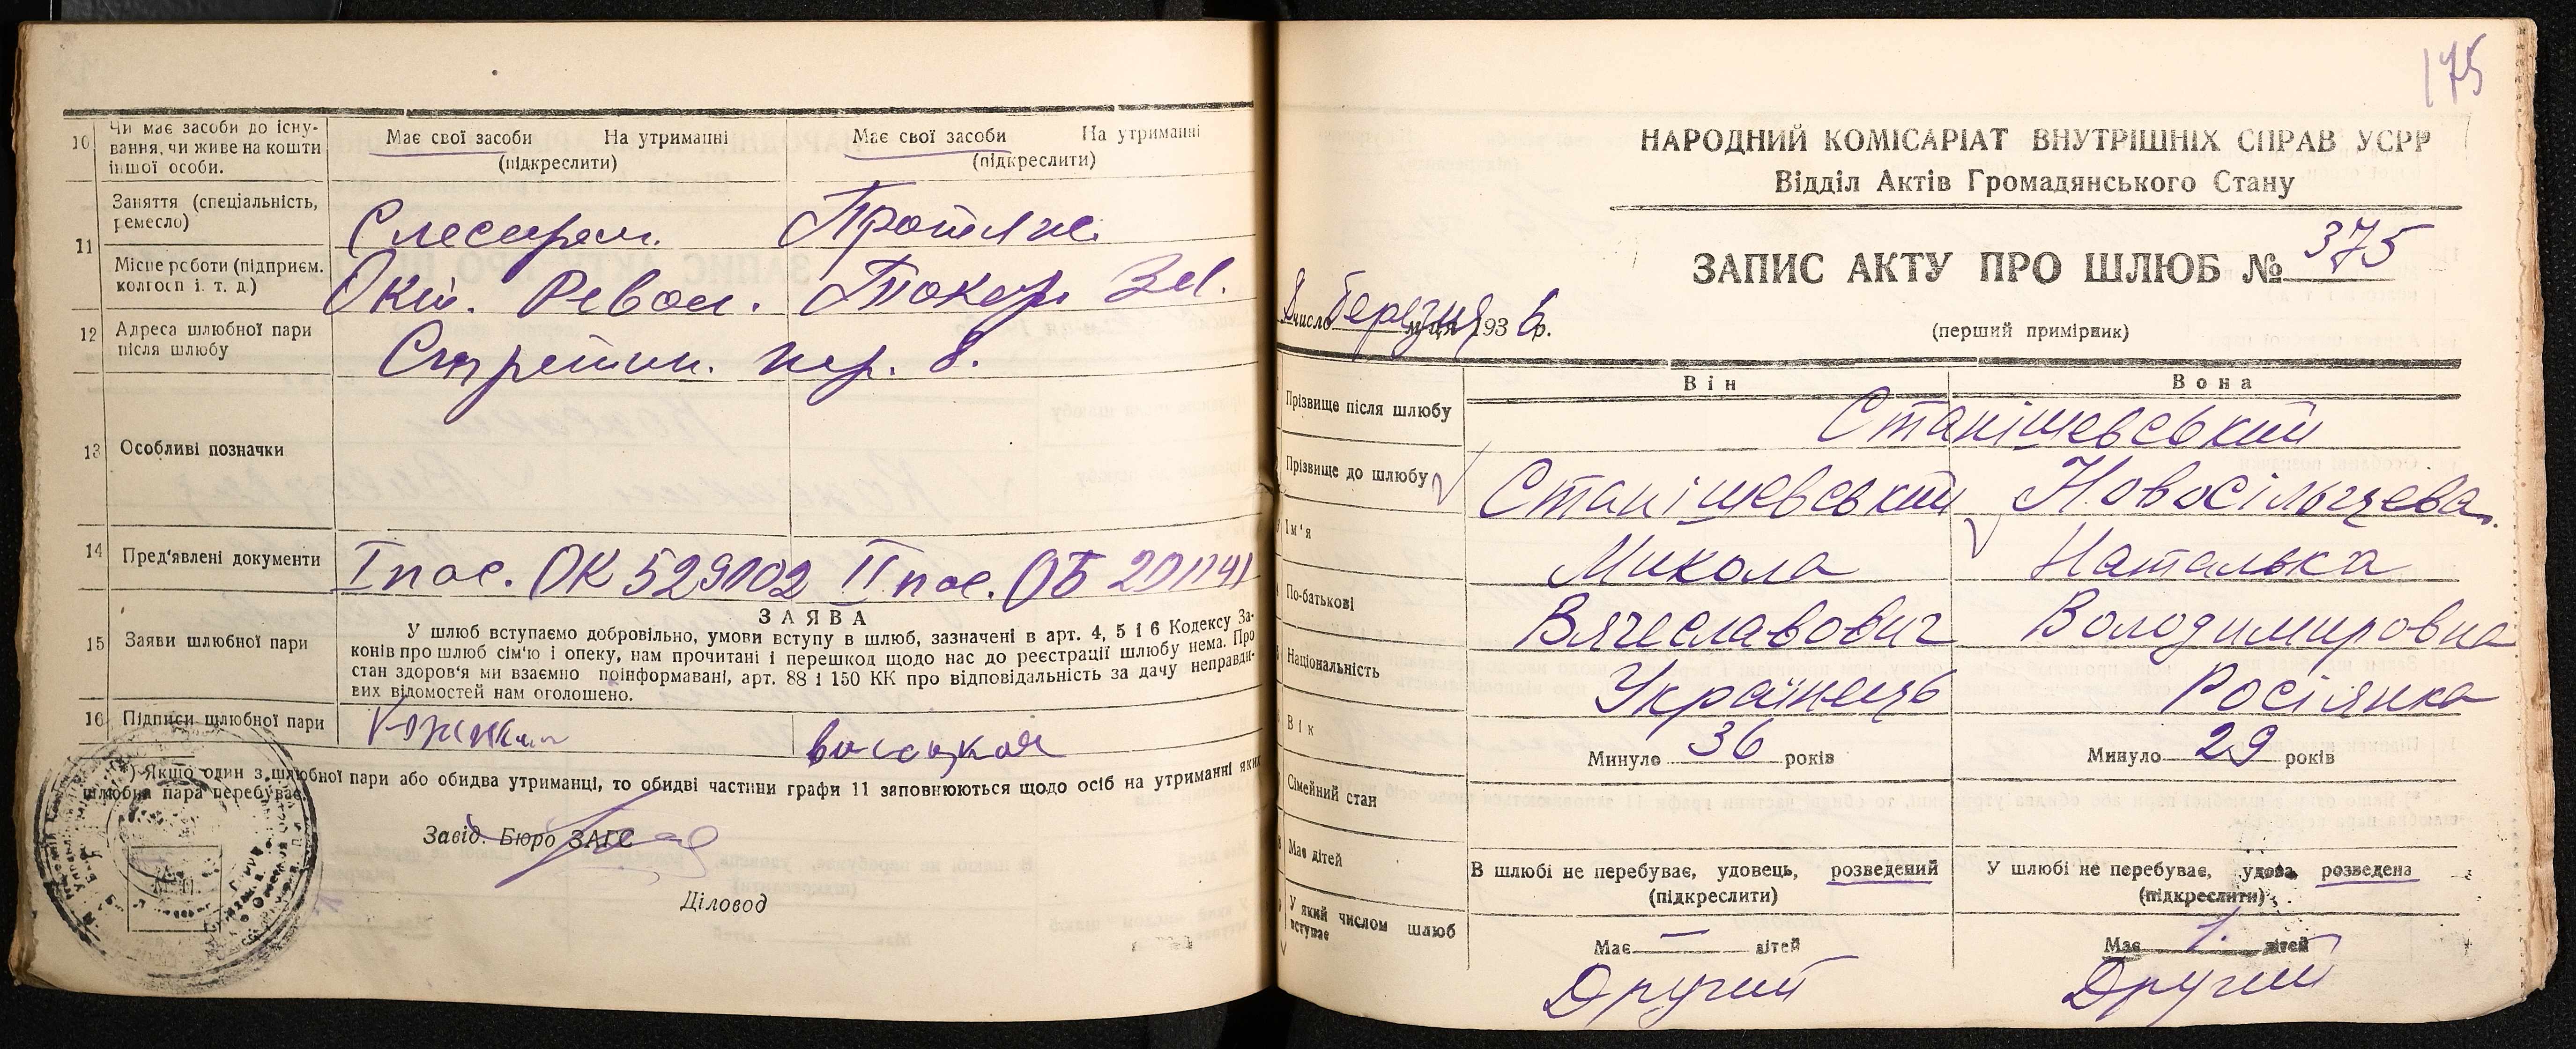 10 Чи має засоби до існу-
вання, чи живе на кошти
іншої особи.
Має свої засоби На утриманні
(підкреслити)
Має свої засоби На утриманні
(підкреслити)
11 Заняття (спеціальність,
ремесло)
Слесарем.
Місце роботи (підприєм.
колгосп і. т. д.)
Окт. Револ. Токар.
12 Адреса шлюбної пари
після шлюбу
Стретин. пер. 8.
13 Особливі позначки
14 Пред'явлені документи
I пас. ОК 529102 II пас. ОБ 201141
15 Заяви шлюбної пари
ЗАЯВА
У шлюб вступаємо добровільно, умови вступу в шлюб, зазначені в арт. 4, 5 і 6 Кодексу За-
конів про шлюб сім'ю і опеку, нам прочитані і перешкод щодо нас до реєстрації шлюбу нема. Про
стан здоров'я ми взаємно поінформавані, арт. 88 і 150 КК про відповідальність за дачу неправди-
вих відомостей нам оголошено.
16 Підписи шлюбної пари
*) Якщо один з шлюбної пари або обидва утриманці, то обидві частини графи 11 заповнюються щодо осіб на утриманні яких
шлюбна пара перебуває.
Завід. Бюро ЗАГС
Діловод
175
НАРОДНИЙ КОМІСАРІАТ ВНУТРІШНІХ СПРАВ УСРР
Відділ Актів Громадянського Стану
ЗАПИС АКТУ ПРО ШЛЮБ № 375
число березня м-ця 1936 р.
(перший примірник)
Він Вона
Прізвище після шлюбу
Станішевський
Прізвище до шлюбу
Станішевський Новосільцева
Ім'я
Микола Наталька
По-батькові
Вячеславович Володимировна
Національність
Українець Росіянка
Вік
Минуло 36 років Минуло 29 років
Сімейний стан
В шлюбі не перебуває, удовець, розведений
(підкреслити)
У шлюбі не перебуває, удова, розведена
(підкреслити)
Має дітей
Має — дітей Має 1. дітей
У який числом шлюб
вступає
Другий Другий